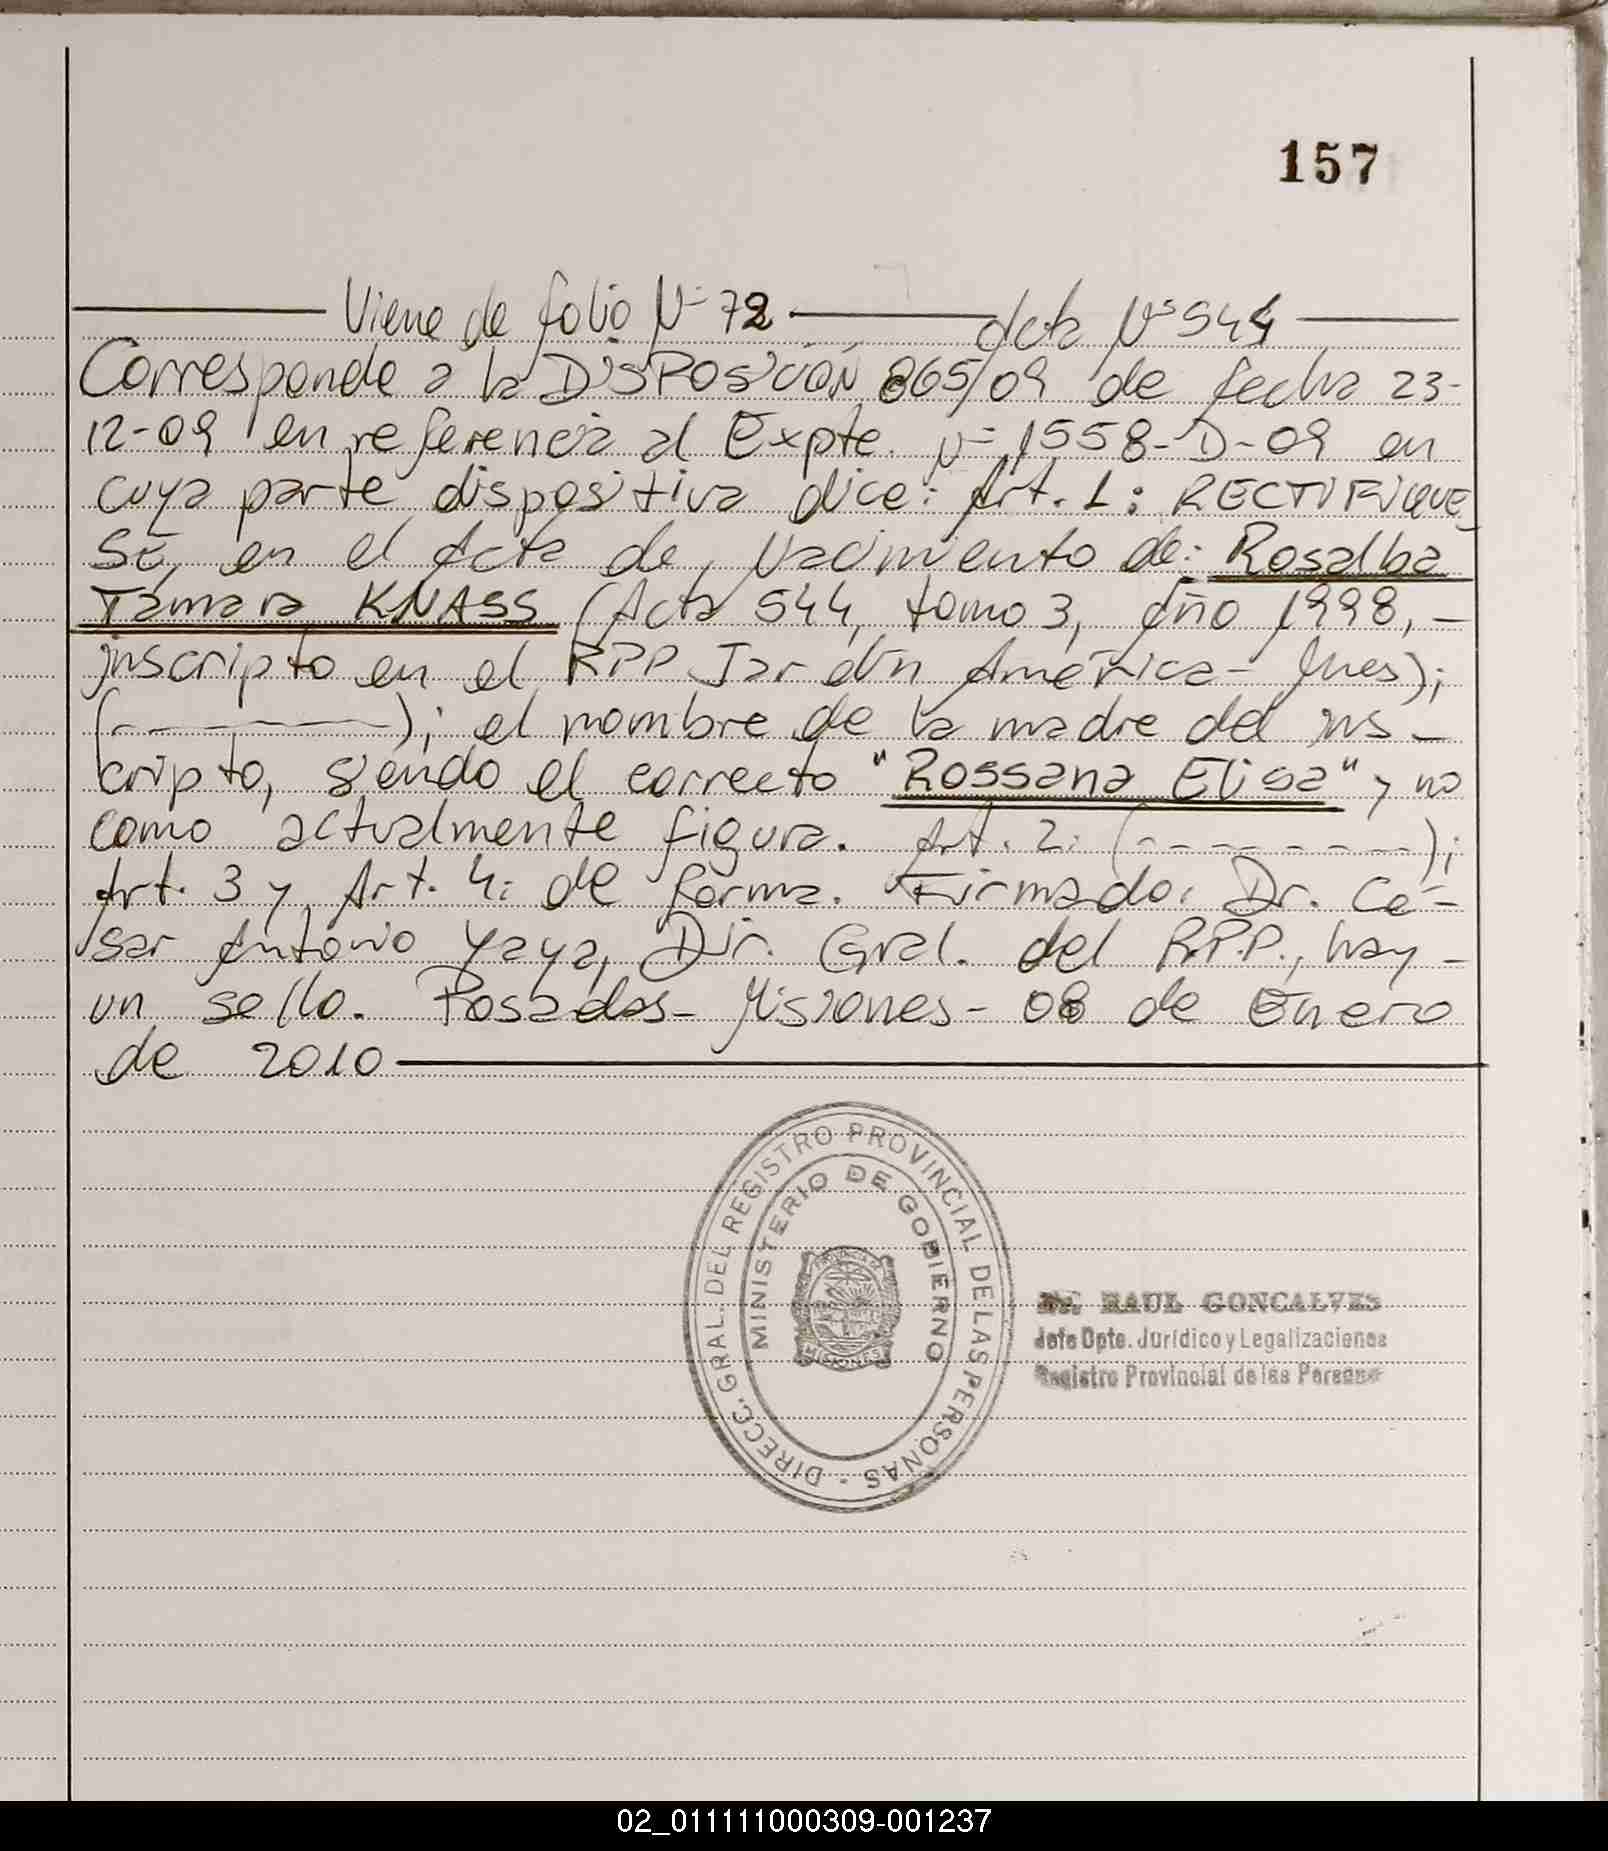 157
Viene de folio Nº 72 Acta Nº 544
Corresponde a la DISPOSICIÓN 865/09 de fecha 23-
12-09 en referencia al Expte. Nº 1558-D-09 en
cuya parte dispositiva dice: Art. 1: RECTIFIQUE
SE, en el Acta de Nacimiento de: Rosalba
Tamara KNASS (Acta 544, tomo 3, Año 1998, -
inscripto en el RPP Jardín América - Mnes);
(- - - - - - -); el nombre de la madre del ins -
cripto, siendo el correcto "Rossana Elisa" y no
como actualmente figura. Art. 2: (- - - - - - - -);
Art. 3 y Art. 4: de forma. Firmado: Dr. Cé-
sar Antonio Yaya, Dir. Gral. del R.P.P., hay -
un sello. Posadas - Misiones - 08 de Enero
de 2010
DIRECC. GRAL. DEL REGISTRO PROVINCIAL DE LAS PERSONAS -
MINISTERIO DE GOBIERNO
PROVINCIA DE
MISIONES
Dr. RAUL GONCALVES
Jefe Dpto. Jurídico y Legalizaciones
Registro Provincial de las Personas
02_011111000309-001237